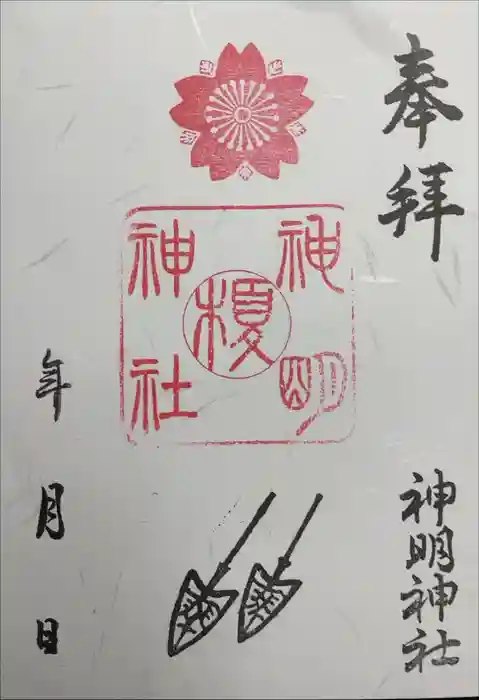 奉拝
神明神社
神明
榎
神社
年月日